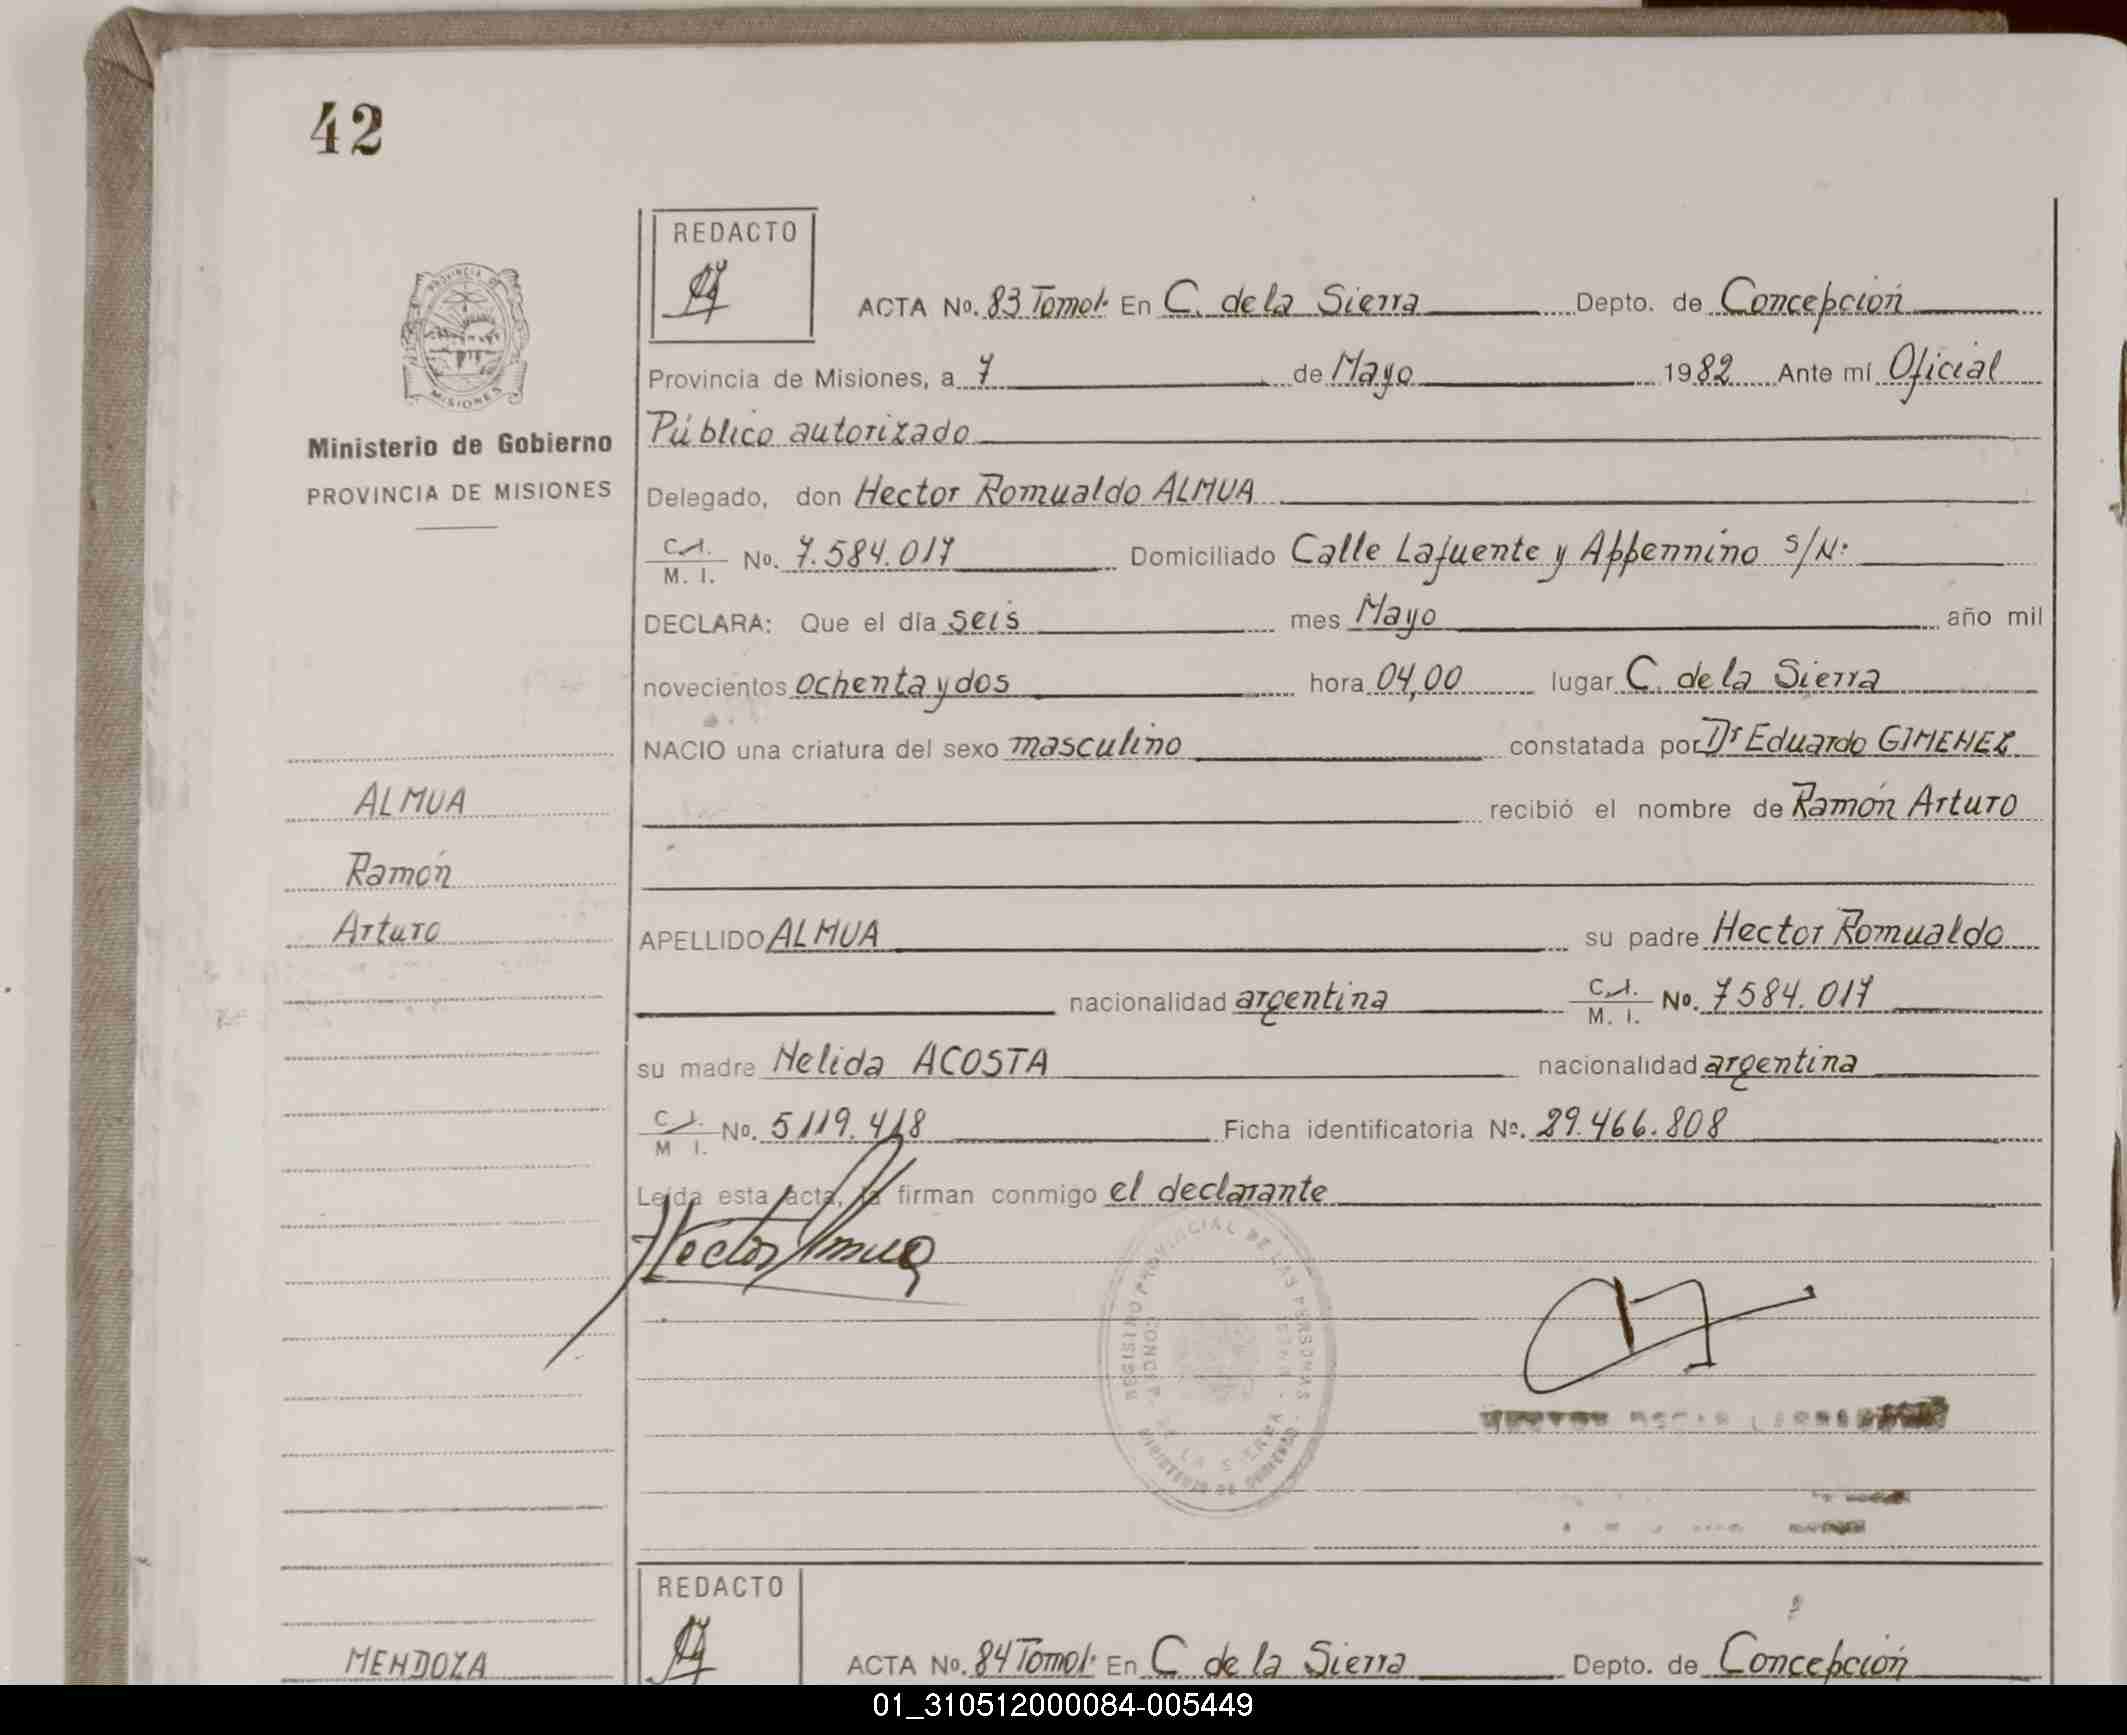 42
REDACTO
ACTA No. 83 Tomo I. En C. de la Sierra Depto. de Concepción
Provincia de Misiones, a 7 de Mayo 1982 Ante mí Oficial
Público autorizado
Ministerio de Gobierno
PROVINCIA DE MISIONES
Delegado, don Hector Romualdo ALMUA
C. I.
M. I.
No. 7.584.017 Domiciliado Calle Lafuente y Appennino S/N.
DECLARA: Que el día seis mes Mayo año mil
novecientos ochenta y dos hora 04,00 lugar C. de la Sierra
NACIO una criatura del sexo masculino constatada por Dr Eduardo GIMENEZ
ALMUA
recibió el nombre de Ramón Arturo
Ramón
Arturo
APELLIDO ALMUA su padre Hector Romualdo
nacionalidad argentina C. I. M. I. No. 7584.017
su madre Nelida ACOSTA nacionalidad argentina
C. I.
M I.
No. 5119.418 Ficha identificatoria Nº. 29.466.808
Leída esta acta, la firman conmigo el declarante
Hector Almua
REGISTRO PROVINCIAL DE LAS PERSONAS
MINISTERIO DE GOBIERNO
LA SIERRA
REDACTO
MENDOZA
ACTA No. 84 Tomo I. En C de la Sierra Depto. de Concepción
01_310512000084-005449